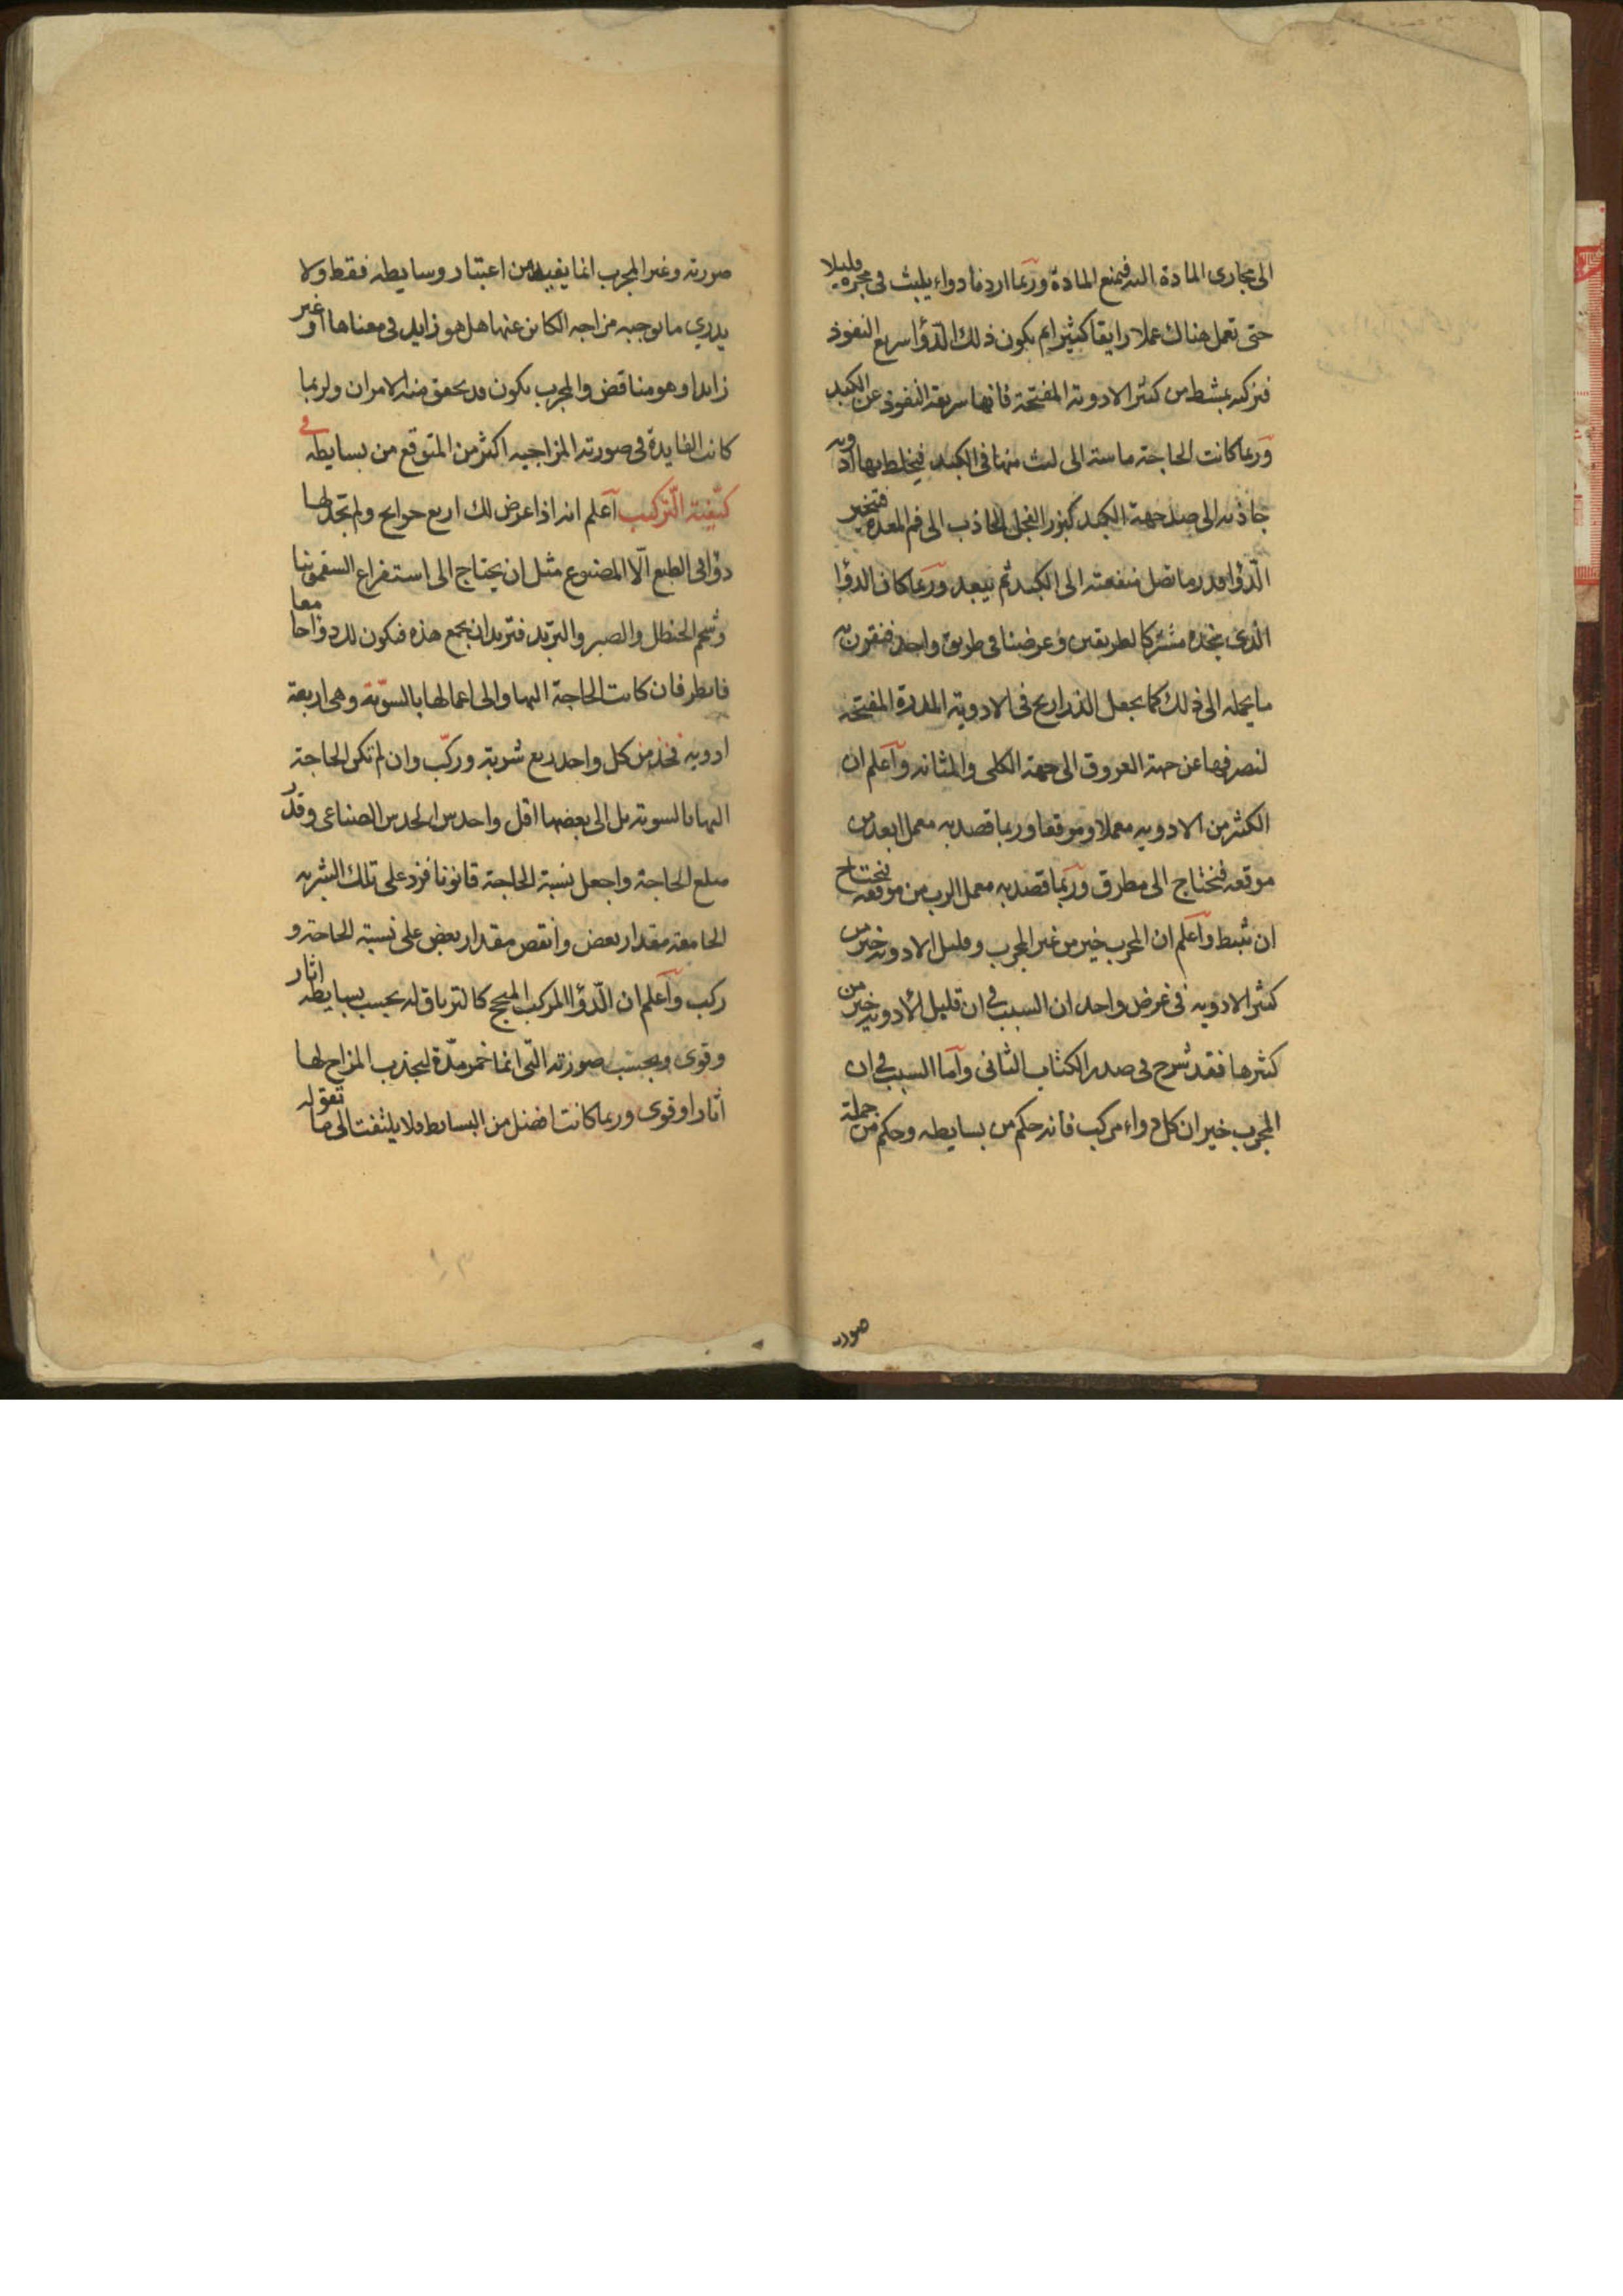 الى مجارى المادة اليه فيمنع المادة وربما اردنا دواء يلبث فى ممره قليلا
حتى تعمل هناك عملا رايقا كثيرا ثم يكون ذلك الدؤا سريع النفوذ
فنركبه بمثبط من كثير الادوية المفتحة فانها سريعة النفوذ عن الكبد
وربما كانت الحاجة ماسة الى لبث منها فى الكبد فيخلط بها ادويه
جاذبه الى ضد جهة الكبد كبزر الفجل الجاذب الى فم المعدة فتحير
الدؤا قدر ما تصل منفعته الى الكبد ثم يبعد وربما كان الدؤا
الذى نجده مشتركا لطريقين وغرضنا فى طريق واحد فنقرن به
ما يحمله الى ذلك كما يجعل الذراريح فى الادوية المدرة المفتحه
لنصرفها عن جهة العروق الى جهة الكلى والمثانه واعلم ان
لكثير من الادويه معملا وموقعا وربما قصد به معمل ابعد من
موقعه فنحتاج الى مطرق وربما قصد به معمل اقرب من موقعه فنحتاج
ان نثبط واعلم ان المجرب خير من غير المجرب وقليل الادويه خير من
كثير الادويه فى غرض واحد ان السبب فى ان قليل الادويه خير من
كثيرها فقد شرح فى صدر الكتاب الثانى واما السبب فى ان
المجرب خير ان كل دواء مركب فانه حكم من بسايطه وحكم من جملة
صورته
صورته وغير المجرب انما يفيد من اعتبار وسايطه فقط ولا
يدرى ما يوجبه مزاجه الكاين عنها هل هو زايد فى معناها او غير
زايد او هو مناقض والمجرب يكون قد تحقق منه الامران ولربما
كانت الفايدة فى صورته المزاجيه اكثر من المتوقع من بسايطه فى
كيفية التركيب اعلم انه اذا عرض لك اربع حوايج ولم تجد لها
دؤا فى الطبع الا المصنوع مثل ان يحتاج الى استفراغ السقمونيا
وشحم الحنظل والصبر والتربد فتريد ان يجمع هذه فيكون للدؤا حا معا
فانظر فان كانت الحاجة اليها والى اعمالها بالسوية وهى اربعة
ادويه فخذ من كل واحد ربع شربة وركب وان لم تكن الحاجة
اليها بالسوية بل الى بعضها اقل واحدس الحدس الصناعى وقدر
مبلغ الحاجة واجعل نسبة الحاجة قانونا فزد على تلك الشربه
الجامعة مقدار بعض وانقص مقدار بعض على نسبة الحاجة و
ركب واعلم ان الدؤا المركب المنجح كالترياق له بحسب بسايطه اثار
وقوى وبحسب صورته التى انما تخمر مدة ليجذب المزاج لها
اثارا وقوى وربما كانت افضل من البسايط فلا يلتفت الى ما تقوله